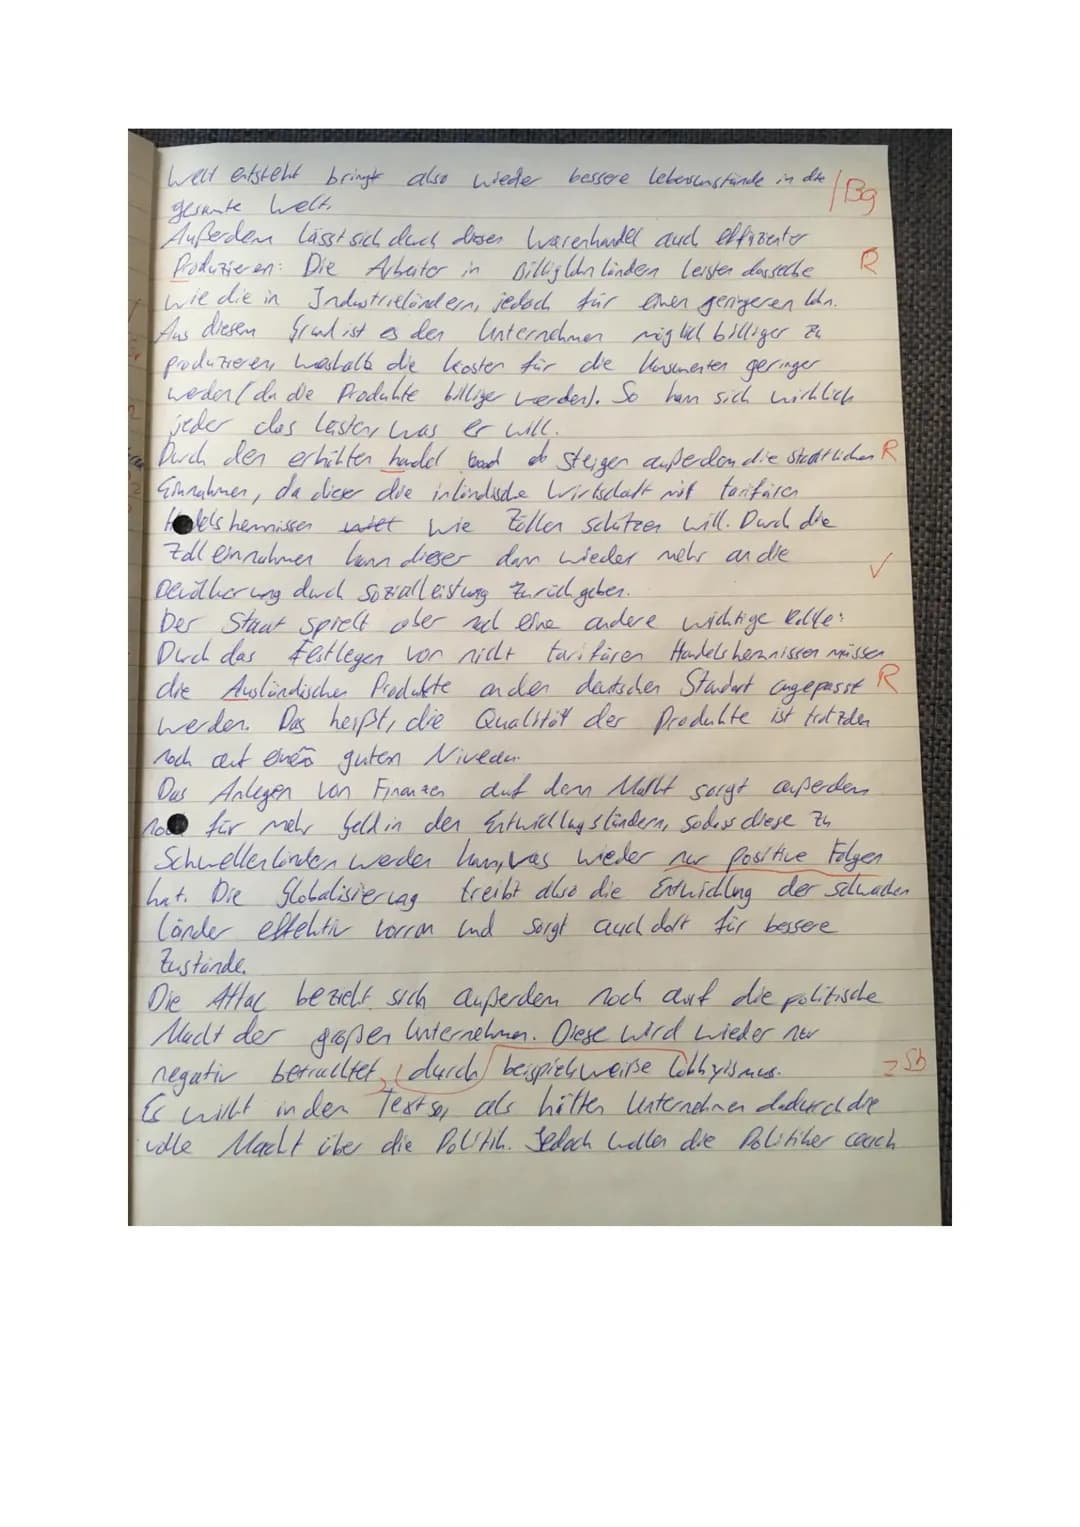 Welt entsteht bringt also wieder bessere Lebensumstände in die /Bg
gesamte Welt.
Außerdem lässt sich durch diesen Warenhandel auch effizienter
Produzieren: Die Arbeiter in Billiglohnländern leisten dasselbe R
wie die in Industrieländern, jedoch für einen geringeren Lohn.
Aus diesem Grund ist es den Unternehmen möglich billiger zu
produzieren, weshalb die Kosten für die Konsumenten geringer
werden (da die Produkte billiger werden). So kann sich wirklich
jeder das leisten, was er will.
Durch den erhöhten handel steigen außerdem die staatlichen R
Einnahmen, da dieser die inländische Wirtschaft mit tarifären
Handelshemnissen wie Zöllen schützen will. Durch die
Zolleinnahmen kann dieser dann wieder mehr an die
Bevölkerung durch Sozialleistung zurückgeben. ✓
Der Staat spielt aber noch eine andere wichtige Rolle:
Durch das Festlegen von nicht tarifären Handelshemnissen müssen
die Ausländischen Produkte an den deutschen Standart angepasst R
werden. Das heißt, die Qualität der Produkte ist trotzdem
noch auf guten Niveau.
Das Anlegen von Finanzen auf dem Markt sorgt außerdem
noch für mehr Geld in den Entwicklungsländern, sodass diese zu
Schwellenländern werden kann, was wieder nur positive Folgen
hat. Die Globalisierung treibt also die Entwicklung der schwachen
Länder effektiv vorran und sorgt auch dort für bessere
Zustände.
Die Attac bezieht sich außerdem noch auf die politische
Macht der großen Unternehmen. Diese wird wieder nur
negativ betrachtet, durch beispielsweiße Lobbyismus. Sb
Es wirkt in dem Text so, als hätten Unternehmen dadurch die
volle Macht über die Politik. Jedoch wollen die Politiker auch